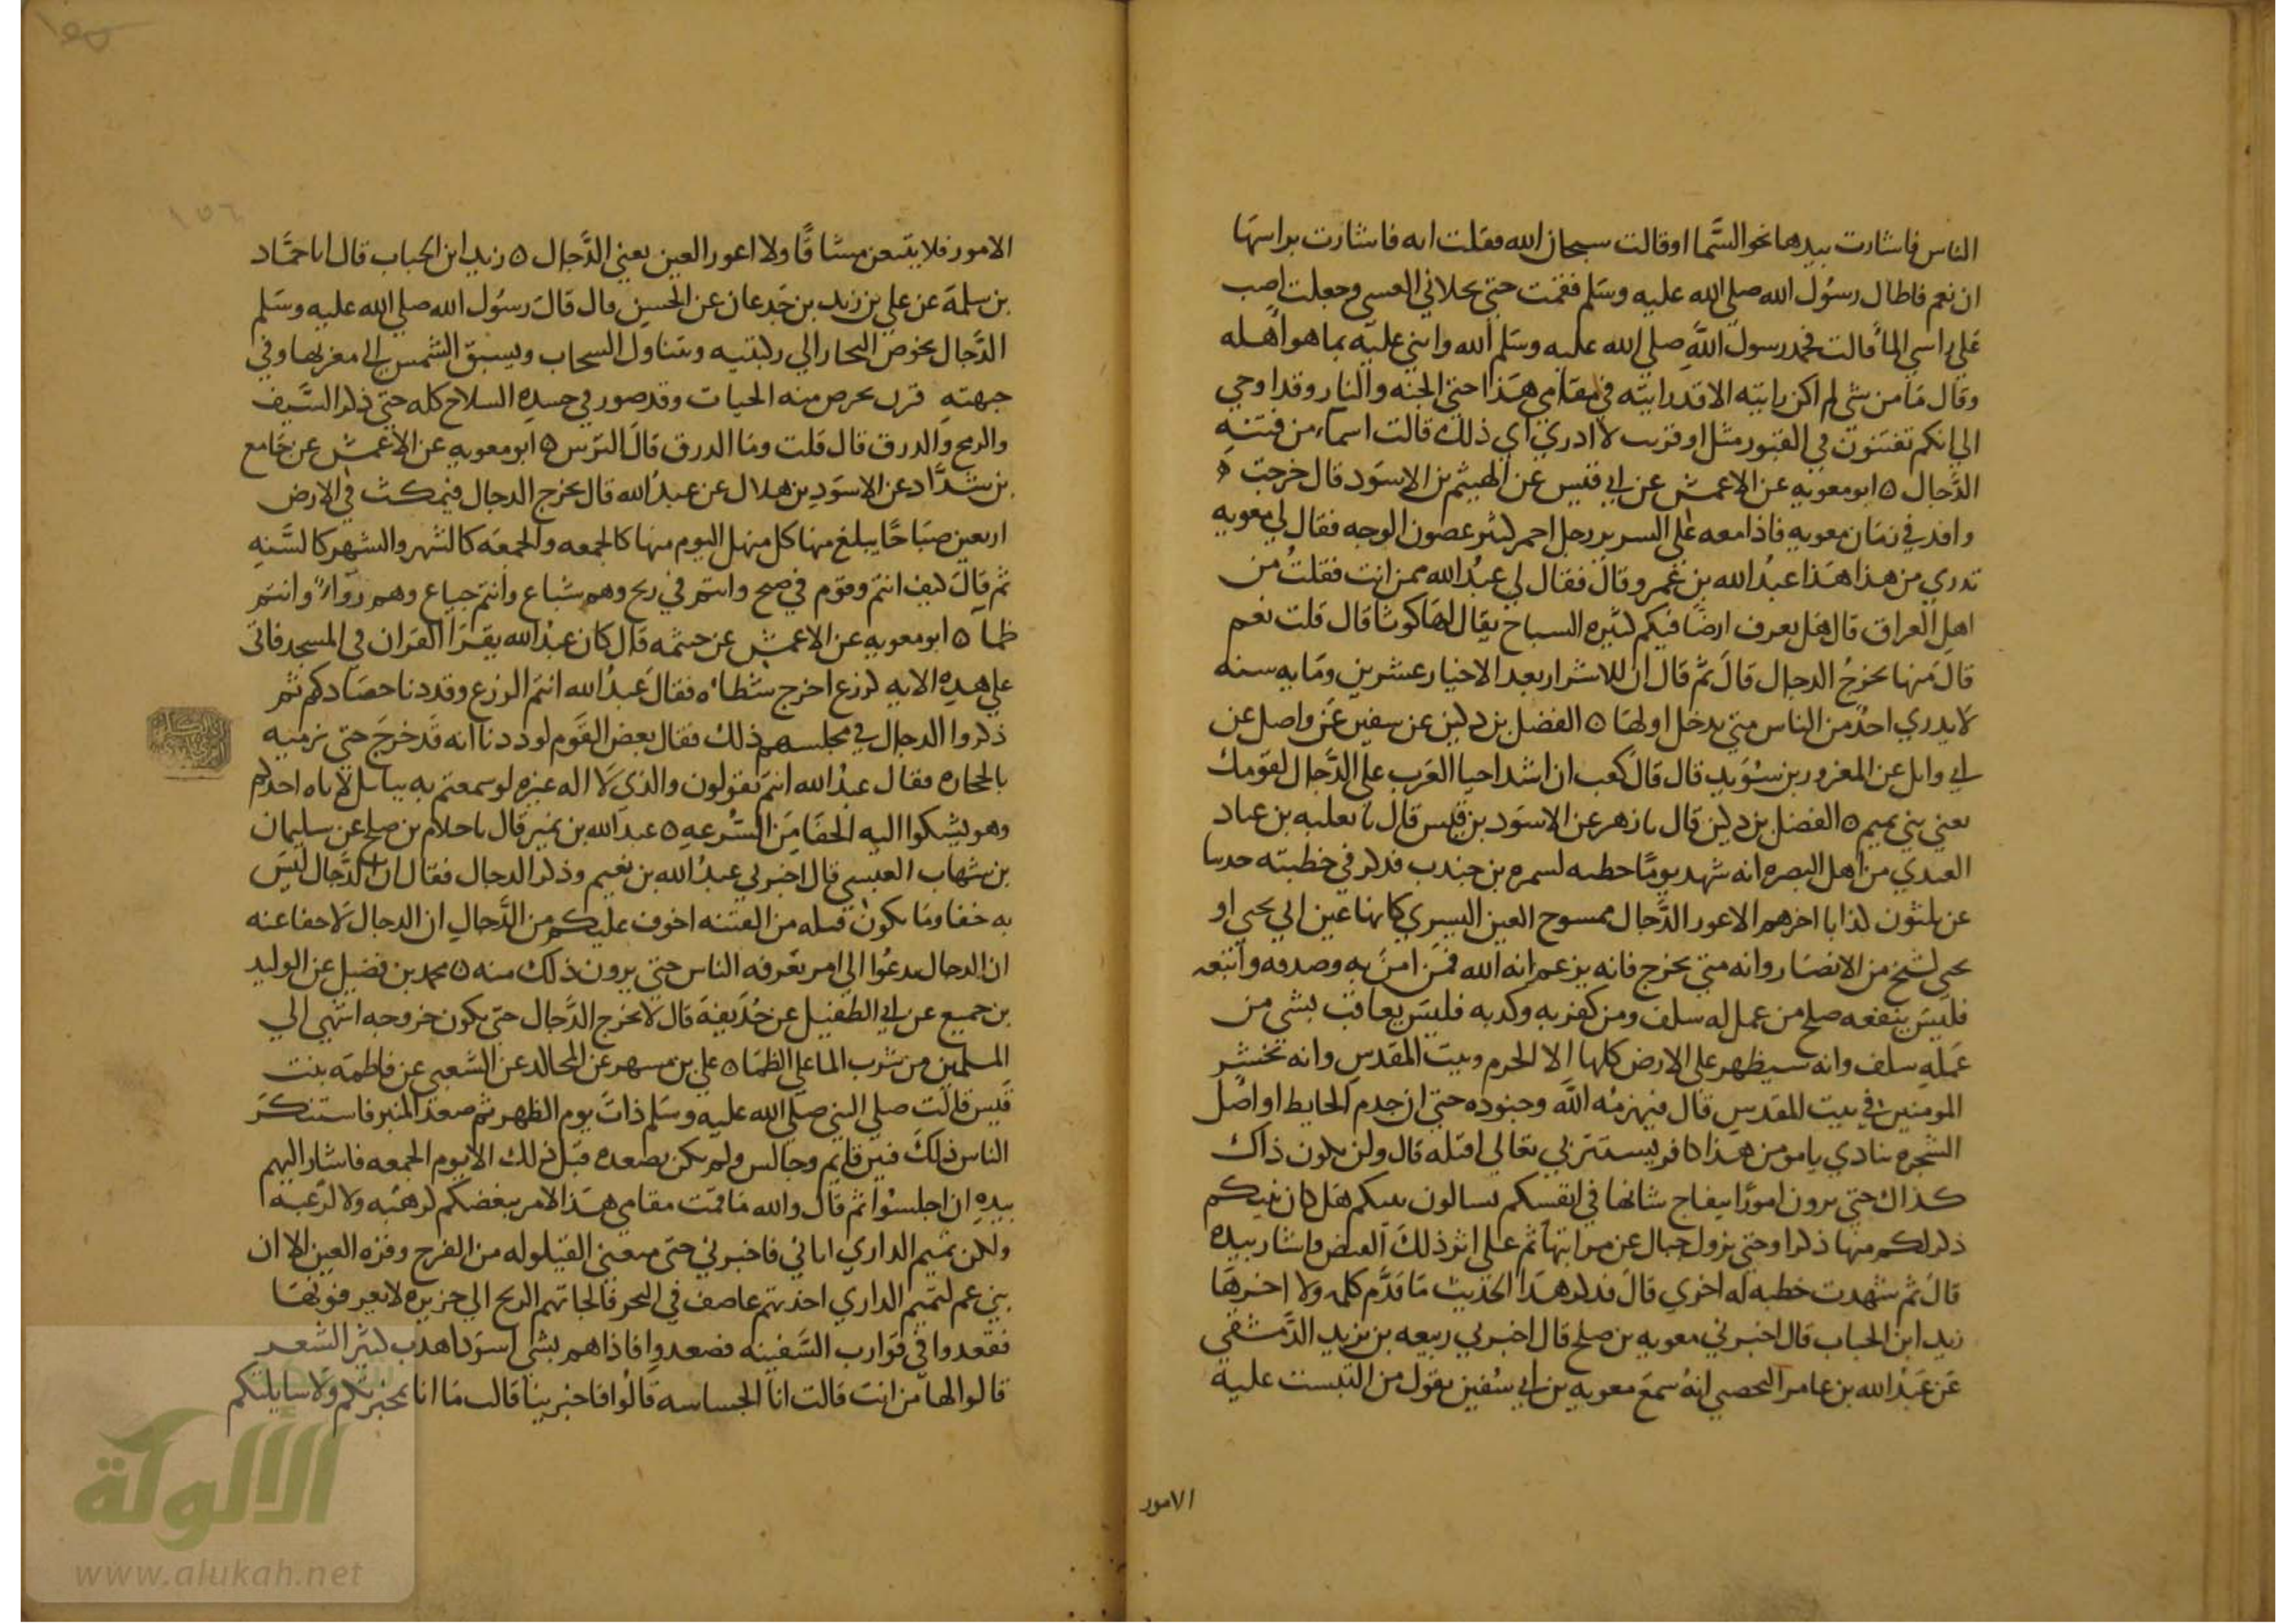 الناس فاشارت بيدها نحو السما او قالت سبحان الله فقلت ايه فاشارت براسها
ان نعم فاطال رسول الله صلي الله عليه وسلم فقمت حتي تجلاني الغسي وجعلت اصب
علي راسي الما قالت فحمد رسول الله صلي الله عليه وسلم الله واثني عليه بما هو اهله
وقال ما من شي لم اكن رايته الا قد رايته في مقامي هذا حتي الجنه والنار وقد اوحي
الي انكم تفتنون في القبور مثل او قريب لا ادري اي ذلك قالت اسماء من فتنه
الدجال ه ابو معويه عن الاعمش عن ابي قيس عن الهيثم بن الاسود قال خرجت
وافد في زمان معويه فاذا معه علي السرير رجل احمر كثير غضون الوجه فقال لي معويه
تدري من هذا هذا عبد الله بن عمرو قال فقال لي عبد الله ممن انت فقلت من
اهل العراق قال هل تعرف ارضا فيكم كثيره السباخ يقال لها كوثا قال قلت نعم
قال منها يخرج الدجال قال ثم قال ان للاشرار بعد الاخيار عشرين ومايه سنه
لا يدري احد من الناس متي يدخل اولها ه الفضل بن دكين عن سفين عن واصل عن
ابي وايل عن المعرور بن سويد قال قال كعب ان اشد احيا العرب علي الدجال لقومك
يعني بني تميم ه الفضل بن دكين قال نا زهر عن الاسود بن قيس قال نا ثعلبه بن عباد
العبدي من اهل البصره انه شهد يوما خطبه لسمره بن جندب فذكر في خطبته حديثا
عن ثلثون كذابا اخرهم الاعور الدجال ممسوح العين اليسري كانها عين ابي يحيي او
يحيي لشيخ من الانصار وانه متي يخرج فانه يزعم انه الله فمن امن به وصدقه واتبعه
فليس ينفعه صلح من عمل له سلف ومن كفر به وكذبه فليس يعاقب بشي من
عمله سلف وانه سيظهر علي الارض كلها الا الحرم وبيت المقدس وانه يحشر
المومنين في بيت المقدس قال فيهزمه الله وجنوده حتي ان جدم الحايط او اصل
الشجره ينادي يا مومن هذا كافر يستتر بي تعالي اقتله قال ولن يكون ذاك
كذاك حتي ترون امورا يتفاج شانها في انفسكم تسالون بينكم هل كان نبيكم
ذكر لكم منها ذكرا وحتي تزول جبال عن مراتبها ثم علي اثر ذلك القبض واشار بيده
قال ثم شهدت خطبه له اخري قال فذكر هذا الحديث ما قدم كلمه ولا اخرها
زيد ابن الحباب قال اخبرني معويه بن صلح قال اخبرني ربيعه بن يزيد الدمشقي
عن عبد الله بن عامر اليحصبي انه سمع معويه بن ابي سفين يقول من التبست عليه
الامور
الامور فلا يتبعن مشاقا ولا اعور العين يعني الدجال ه زيد ابن الحباب قال انا حماد
بن سلمة عن علي بن زيد بن جدعان عن الحسن قال قال رسول الله صلي الله عليه وسلم
الدجال يخوض البحار الي ركبتيه ويتناول السحاب ويسبق الشمس الي مغربها وفي
جبهته قرن يخرص منه الحيات وقد صور في جسده السلاح كله حتي ذكر السيف
والرمح والدرق قال قلت وما الدرق قال الترس ه ابو معويه عن الاعمش عن جامع
بن شداد عن الاسود بن هلال عن عبد الله قال يخرج الدجال فيمكث في الارض
اربعين صباحا يبلغ منها كل منهل اليوم منها كالجمعه والجمعه كالشهر والشهر كالسنه
ثم قال كيف انتم وقوم في صح وانتم في ريح وهم شباع وانتم جياع وهم روآء وانتم
ظما ه ابو معويه عن الاعمش عن خيثمه قال كان عبد الله يقرا القران في المسجد فاتي
علي هذه الايه كزرع اخرج شطاه فقال عبد الله انتم الزرع وقد دنا حصادكم ثم
ذكروا الدجال في مجلسهم ذلك فقال بعض القوم لوددنا انه قد خرج حتي نرميه
بالحجاره فقال عبد الله انتم تقولون والذي لا اله غيره لو سمعتم به ببابل لاتاه احدكم
وهو يشكوا اليه الحفا من السرعه ه عبد الله بن نمير قال نا حلام بن صلح عن سليمان
بن شهاب العبسي قال اخبرني عبد الله بن نعيم وذكر الدجال فقال ان الدجال ليس
به خفا وما يكون قبله من الفتنه اخوف عليكم من الدجال ان الدجال لا خفا عنه
ان الدجال يدعوا الي امر يعرفه الناس حتي يرون ذلك منه ه محمد بن فضيل عن الوليد
بن جميع عن ابي الطفيل عن حذيفة قال لا يخرج الدجال حتي يكون خروجه اشهي الي
المسلمين من شرب الما علي الظما ه علي بن مسهر عن المجالد عن الشعبي عن فاطمة بنت
قيس قالت صلي النبي صلي الله عليه وسلم ذات يوم الظهر ثم صعد المنبر فاستنكر
الناس ذلك فبين قايم وجالس ولم يكن يصعده قبل ذلك الا يوم الجمعه فاشار اليهم
بيده ان اجلسوا ثم قال والله ما قمت مقامي هذا لامر ينغصكم لرهبه ولا لرغبه
ولكن تميم الداري اتاني فاخبرني حتي منعني القيلوله من الفرح وقره العين الا ان
بني عم لتميم الداري اخذتهم عاصف في البحر فالجاتهم الريح الي جزيره لا يعرفونها
فقعدوا في قوارب السفينه فصعدوا فاذا هم بشي اسود اهدب كثير الشعر
قالوا لها من انت قالت انا الجساسه قالوا فاخبرينا قالت ما انا بمخبرتكم ولا سايلتكم
١٥٦
الألوكة
www.alukah.net